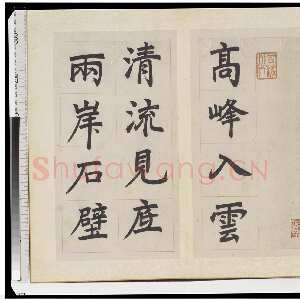 高峰入雲
清流見底
兩岸石壁
Shufawang.CN